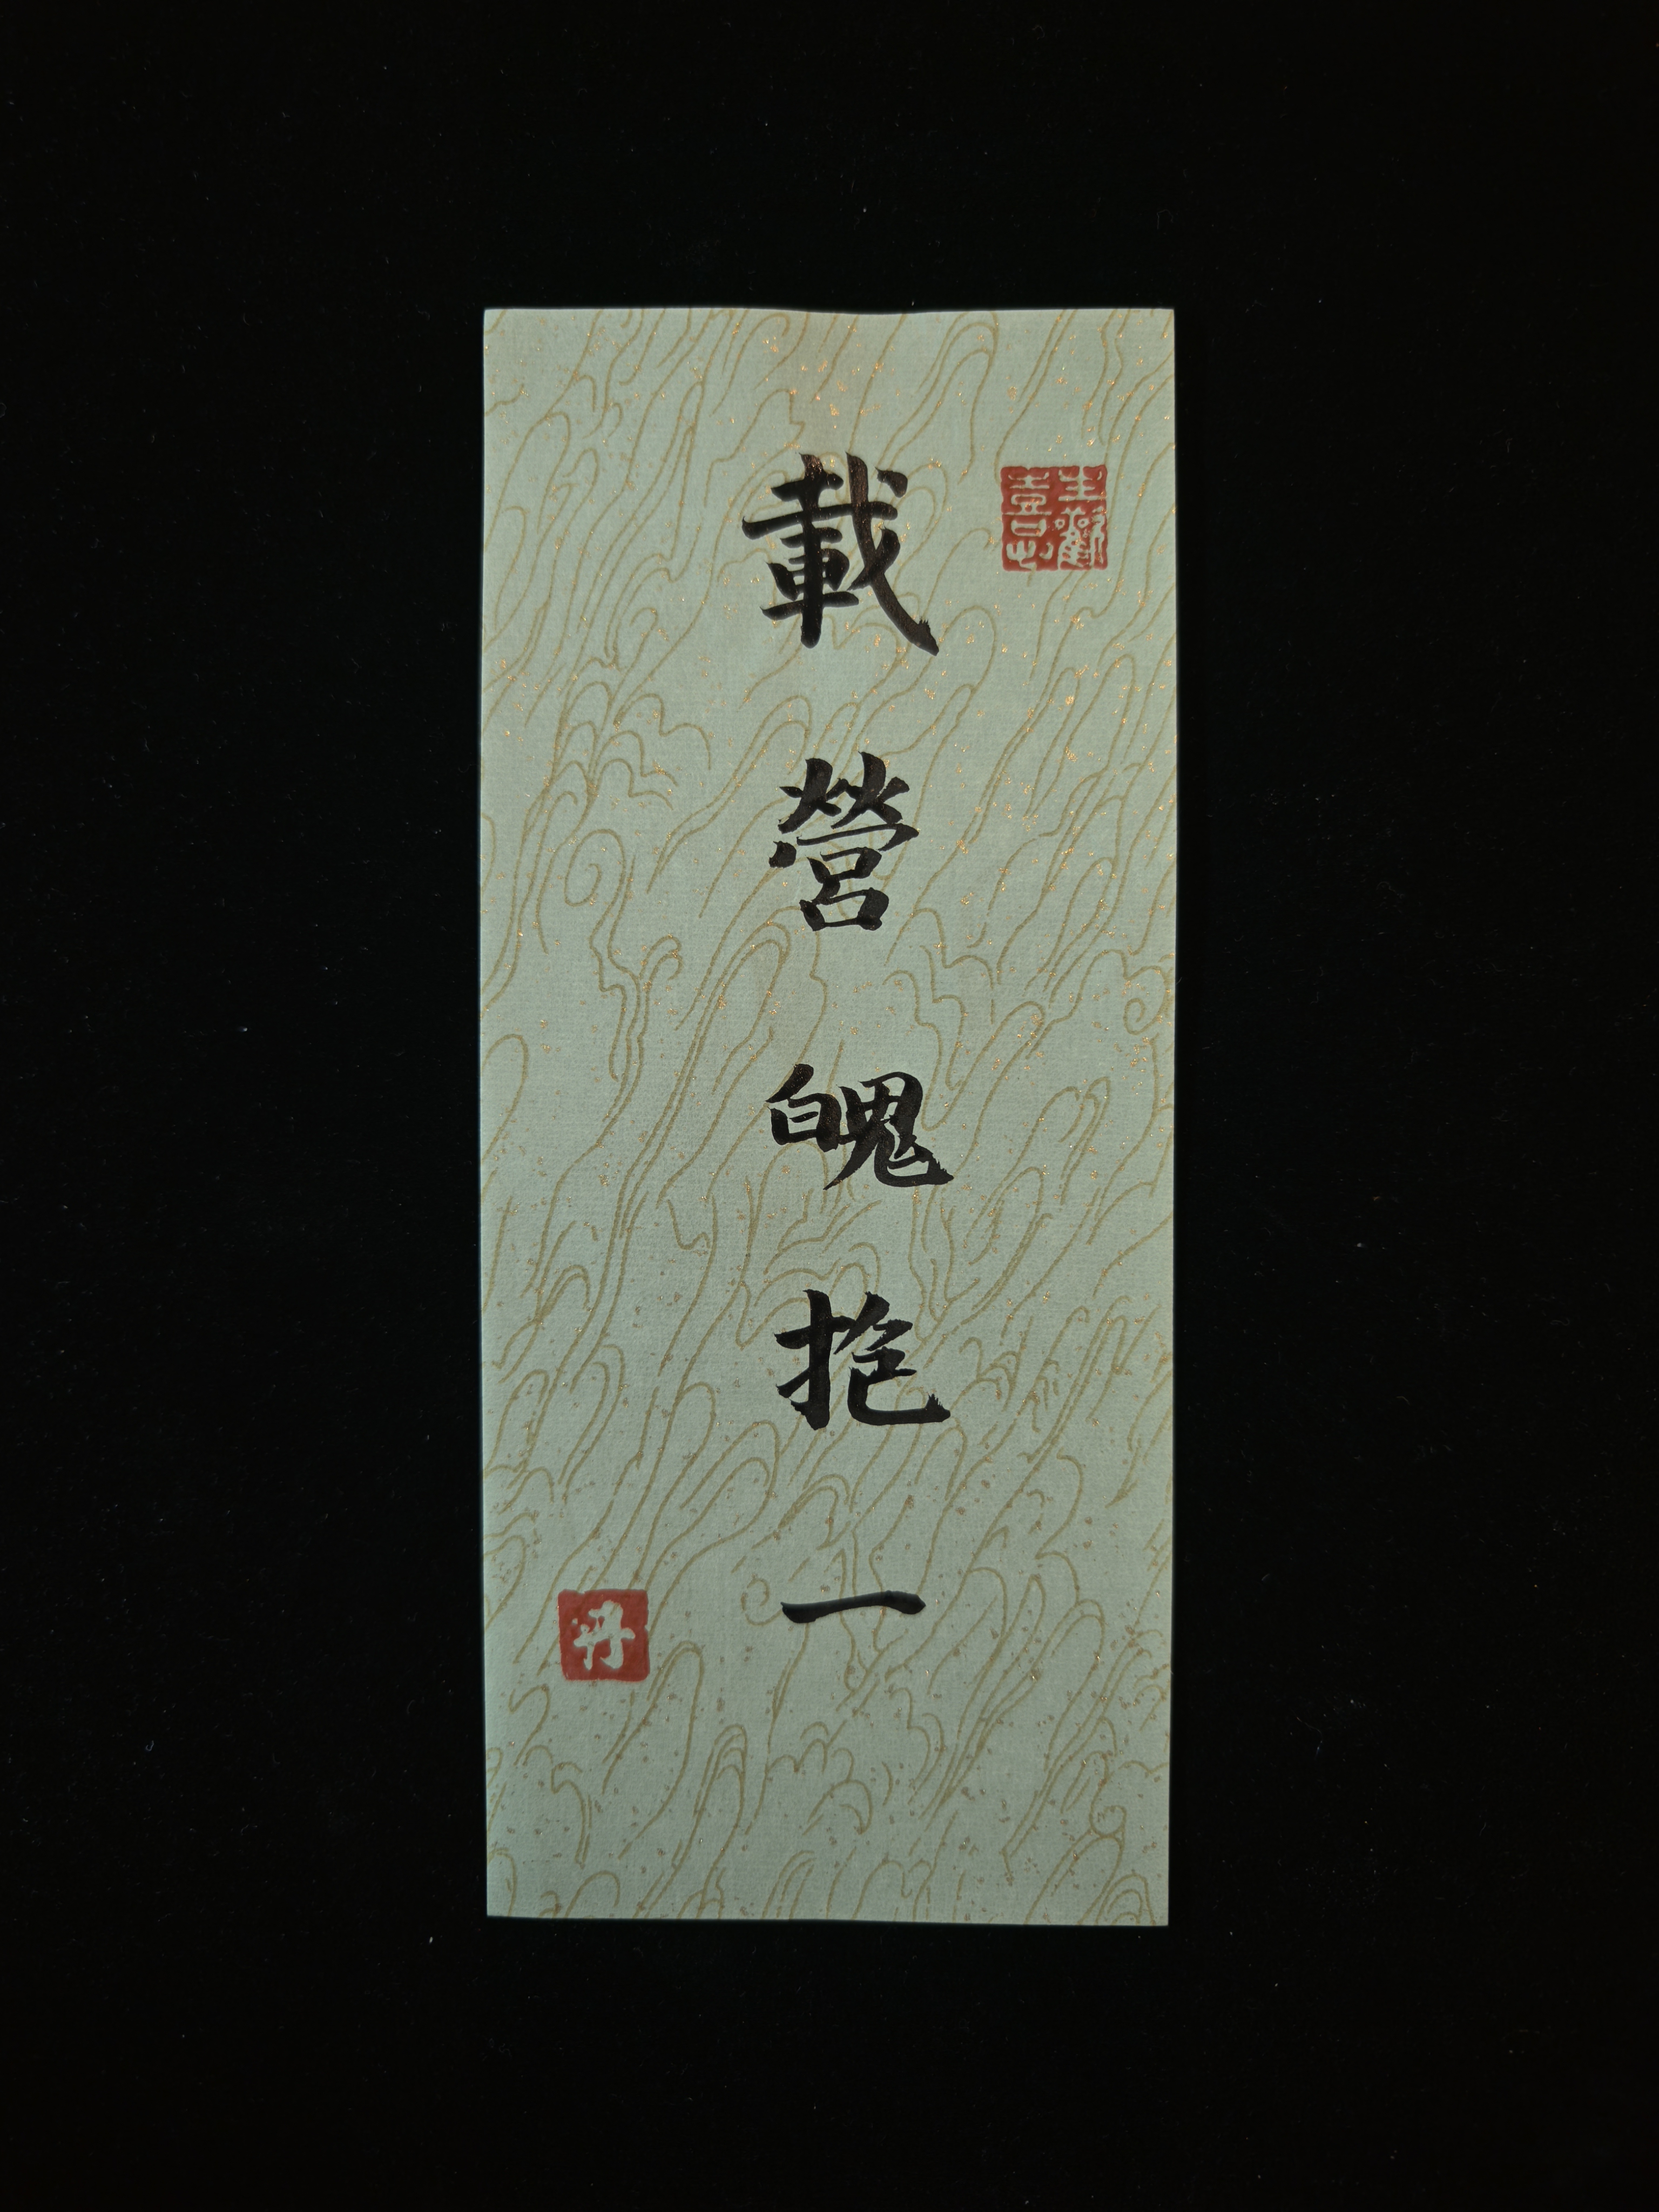 載營魄抱一
丹